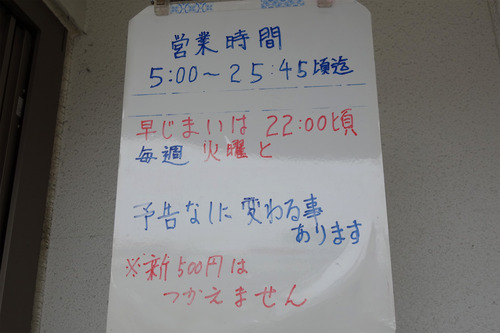 営業時間
5:00〜25:45頃迄
早じまいは 22:00頃
毎週 火曜と
予告なしに変わる事
あります
※新500円は
つかえません